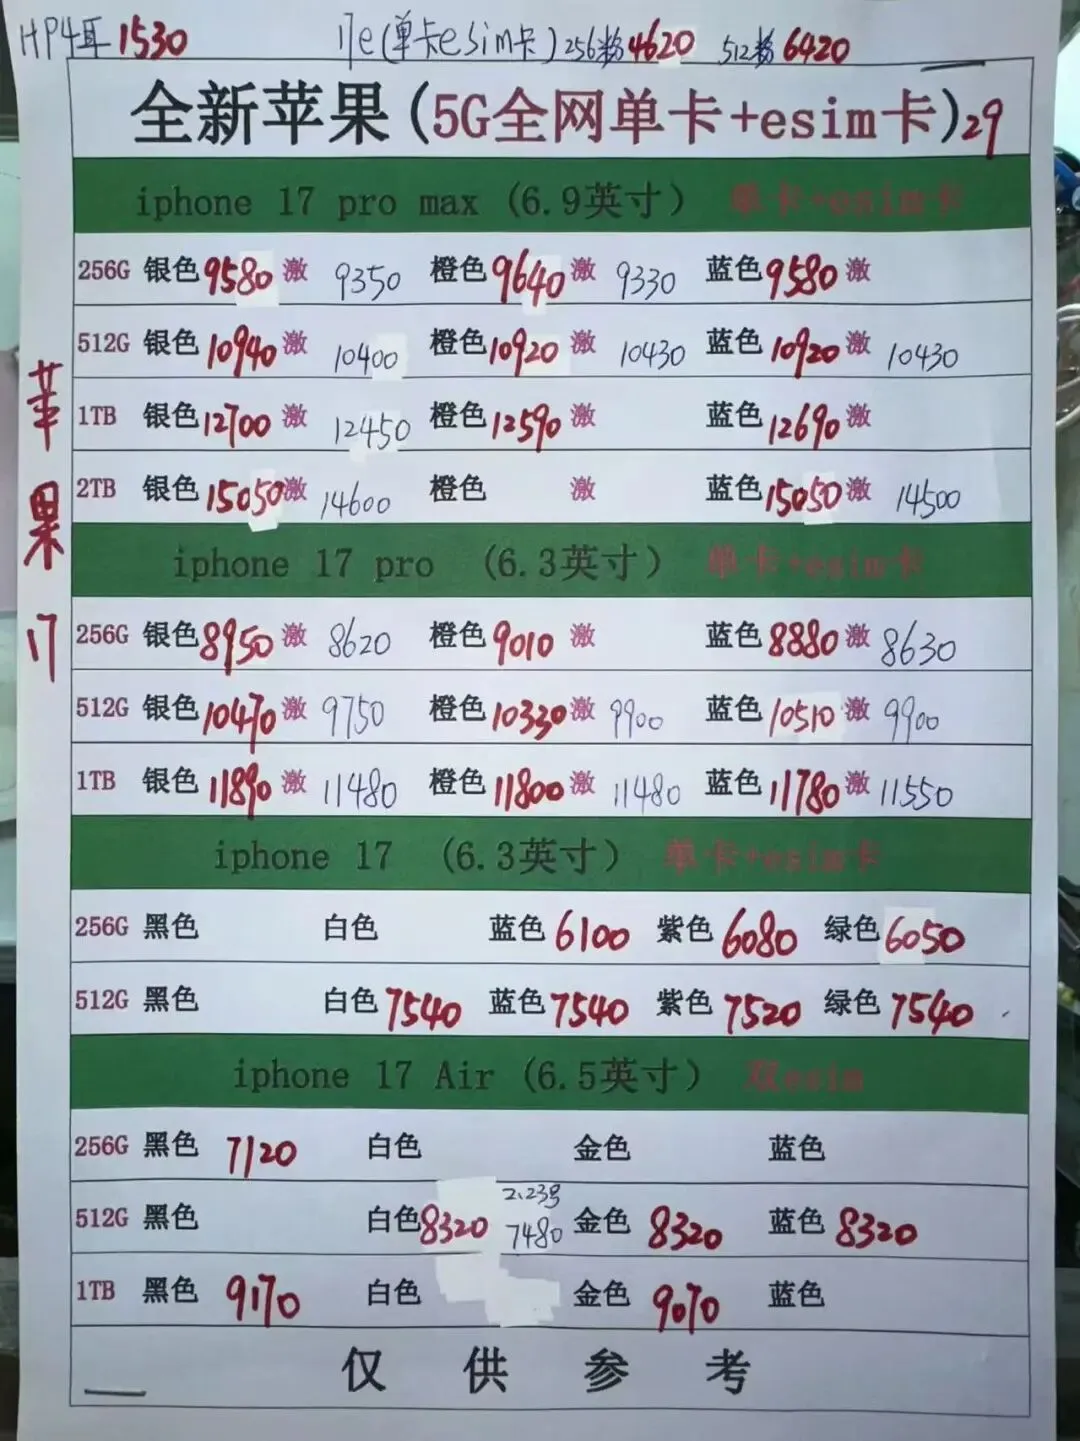 HP4耳 1530 17e(单卡esim卡) 256粉 4620 512粉 6420
全新苹果(5G全网单卡+esim卡) 29
iphone 17 pro max (6.9英寸) 单卡+esim卡
256G 银色 9580 激 9350 橙色 9640 激 9330 蓝色 9580 激
512G 银色 10940 激 10400 橙色 10920 激 10430 蓝色 10920 激 10430
1TB 银色 12700 激 12450 橙色 12590 激 蓝色 12690 激
2TB 银色 15050 激 14600 橙色 激 蓝色 15050 激 14500
苹果17
iphone 17 pro (6.3英寸) 单卡+esim卡
256G 银色 8950 激 8620 橙色 9010 激 蓝色 8880 激 8630
512G 银色 10470 激 9750 橙色 10330 激 9900 蓝色 10510 激 9900
1TB 银色 11890 激 11480 橙色 11800 激 11480 蓝色 11780 激 11550
iphone 17 (6.3英寸) 单卡+esim卡
256G 黑色 白色 蓝色 6100 紫色 6080 绿色 6050
512G 黑色 白色 7540 蓝色 7540 紫色 7520 绿色 7540
iphone 17 Air (6.5英寸) 双esim
256G 黑色 7120 白色 金色 蓝色
512G 黑色 白色 8320 2.23号 7480 金色 8320 蓝色 8320
1TB 黑色 9170 白色 金色 9070 蓝色
仅供参考